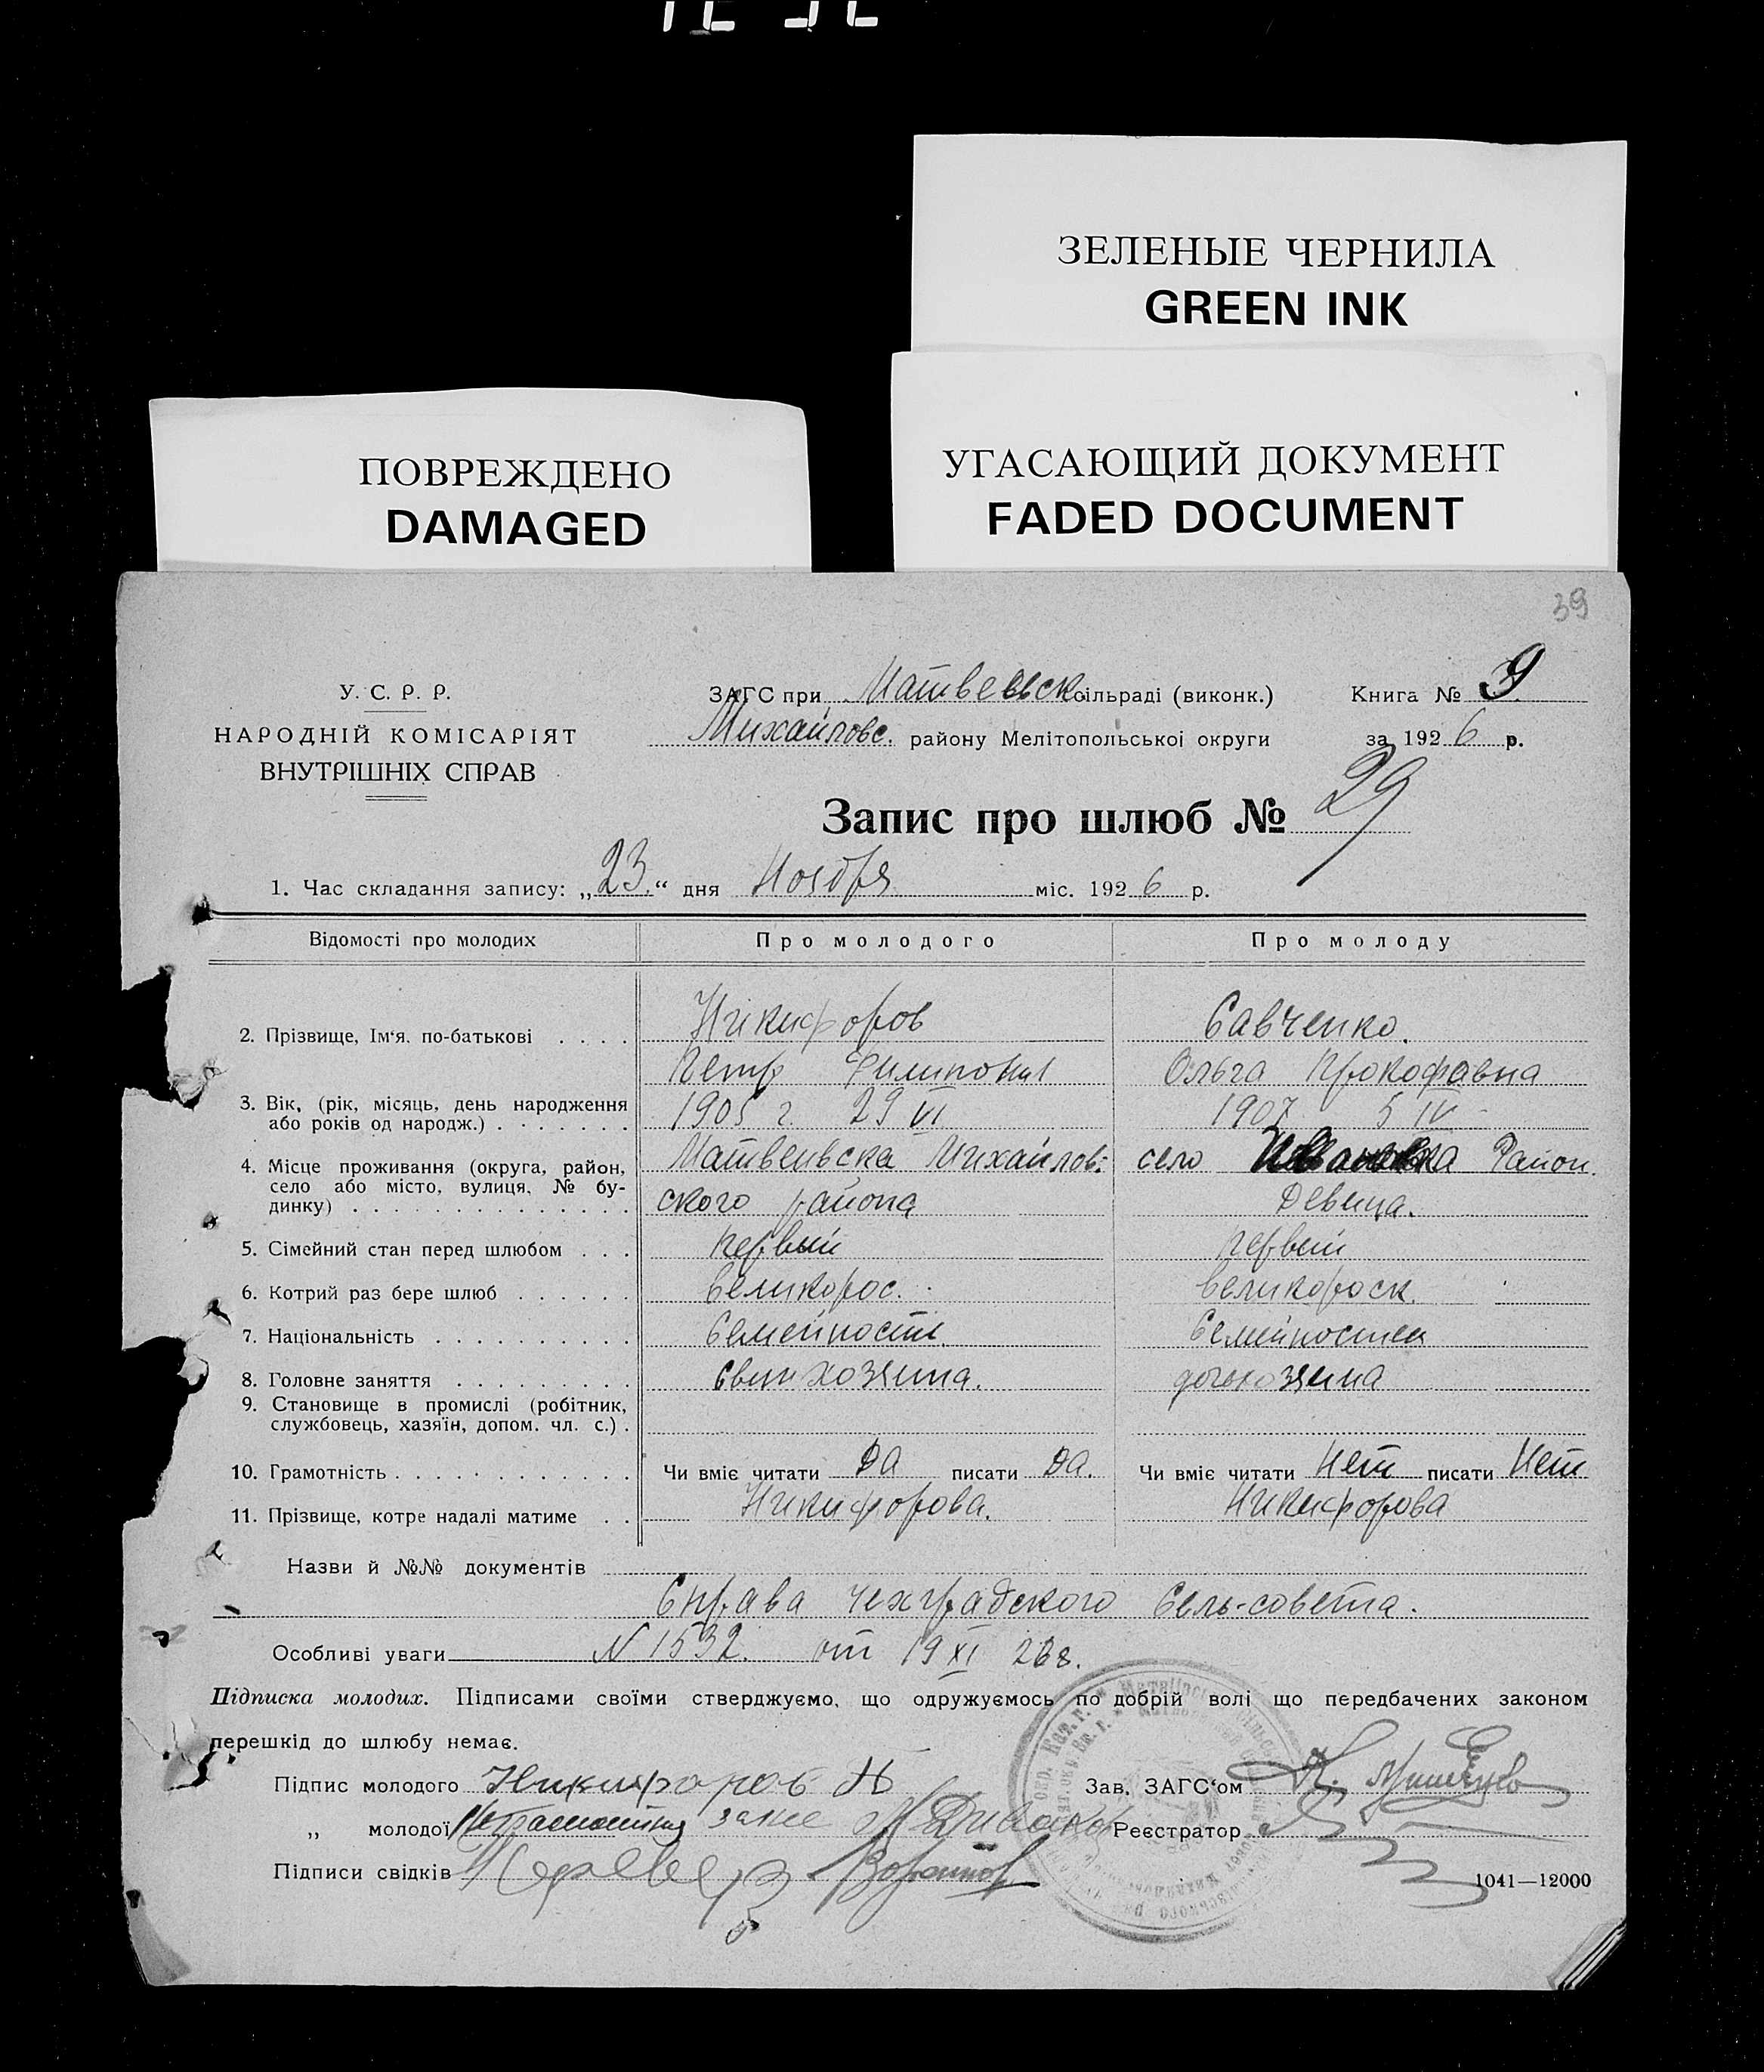 ЗЕЛЕНЫЕ ЧЕРНИЛА
GREEN INK
ПОВРЕЖДЕНО
DAMAGED
УГАСАЮЩИЙ ДОКУМЕНТ
FADED DOCUMENT
39
У. С. Р. Р.
НАРОДНІЙ КОМІСАРІЯТ
ВНУТРІШНІХ СПРАВ
ЗАГС при Матвеевск сільраді (виконк.)
Михайловс. району Мелітопольської округи
Книга № 9
за 1926 р.
Запис про шлюб № 29
1. Час складання запису: „23.“ дня Ноября міс. 1926 р.
Відомості про молодих Про молодого Про молоду
2. Прізвище, Ім'я, по-батькові . . . . Никифоров Савченко.
Петр Филипович Ольга Прокофовна
3. Вік, (рік, місяць, день народження або років од народж.) . . . . . . . 1905 г. 29 VI 1907 5 IV
4. Місце проживання (округа, район, село або місто, вулиця, № будинку) . . . . . . . . . . . . . . Матвеивска Михайлов- село Район.
ского района Девица.
5. Сімейний стан перед шлюбом . . . первый первый
6. Котрий раз бере шлюб . . . . . . великорос. великороск.
7. Національність . . . . . . . . . . Семейност.
8. Головне заняття . . . . . . . . . хозяина.
9. Становище в промислі (робітник, службовець, хазяїн, допом. чл. с.) .
10. Грамотність . . . . . . . . . . . . Чи вміє читати Да писати Да. Чи вміє читати Нет писати Нет
11. Прізвище, котре надалі матиме . . Никифорова. Никифорова
Назви й №№ документів
Справа Чехградского Сель-совета.
Особливі уваги N 1532. от 19 XI 26г.
Підписка молодих. Підписами своїми стверджуємо, що одружуємось по добрій волі що передбачених законом
перешкід до шлюбу немає.
Підпис молодого Никифоров
Зав. ЗАГС'ом
„ молодої Неграмотная
Реєстратор
Підписи свідків
1041—12000